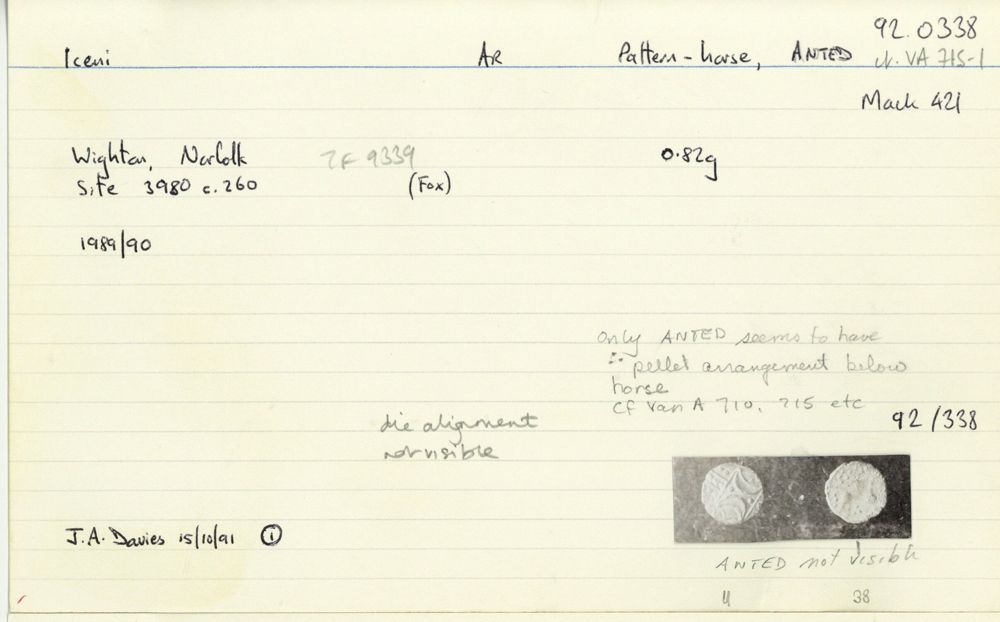 92.0338
Iceni AR Pattern-horse, ANTED cf. VA 715-1
Mack 421
Wighton, Norfolk TF 9339 0.82g
Site 3980 c.260 (Fox)
1989/90
only ANTED seems to have
pellet arrangement below
horse
cf Van A 710, 715 etc
92/338
die alignment
not visible
J.A. Davies 15/10/91 ①
ANTED not visible
38